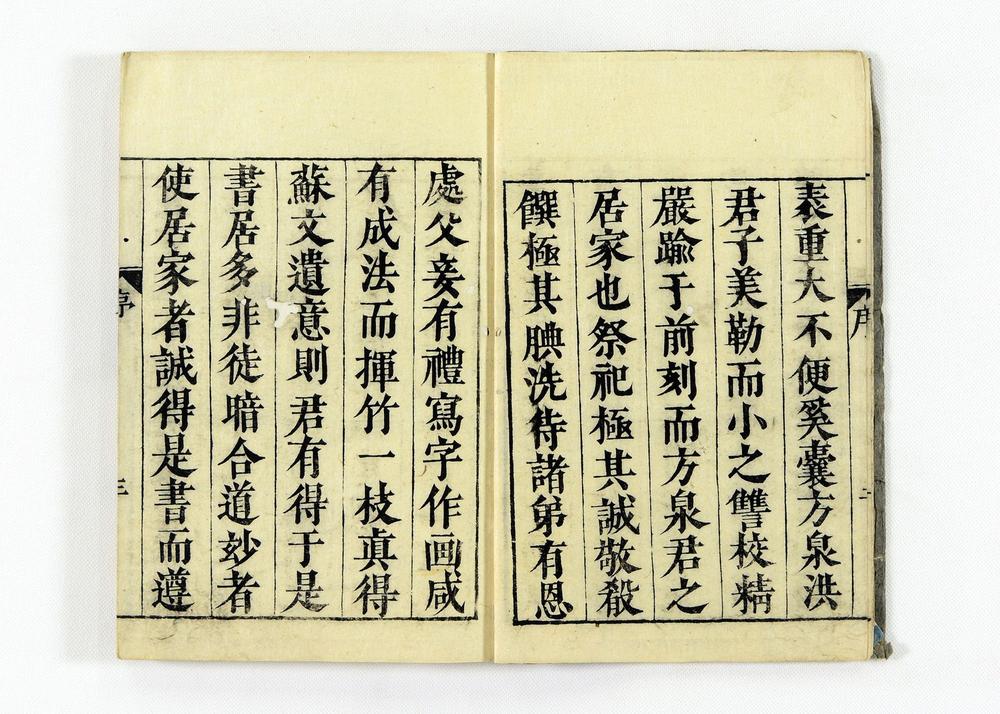 序
二
表重大不便奚囊方泉洪
君子美勒而小之讐校精
嚴踰于前刻而方泉君之
居家也祭祀極其誠敬殽
饌極其腆洗待諸弟有恩
處父妾有禮寫字作画咸
有成法而揮竹一枝真得
蘇文遺意則君有得于是
書居多非徒暗合道玅者
使居家者誠得是書而遵
序
三